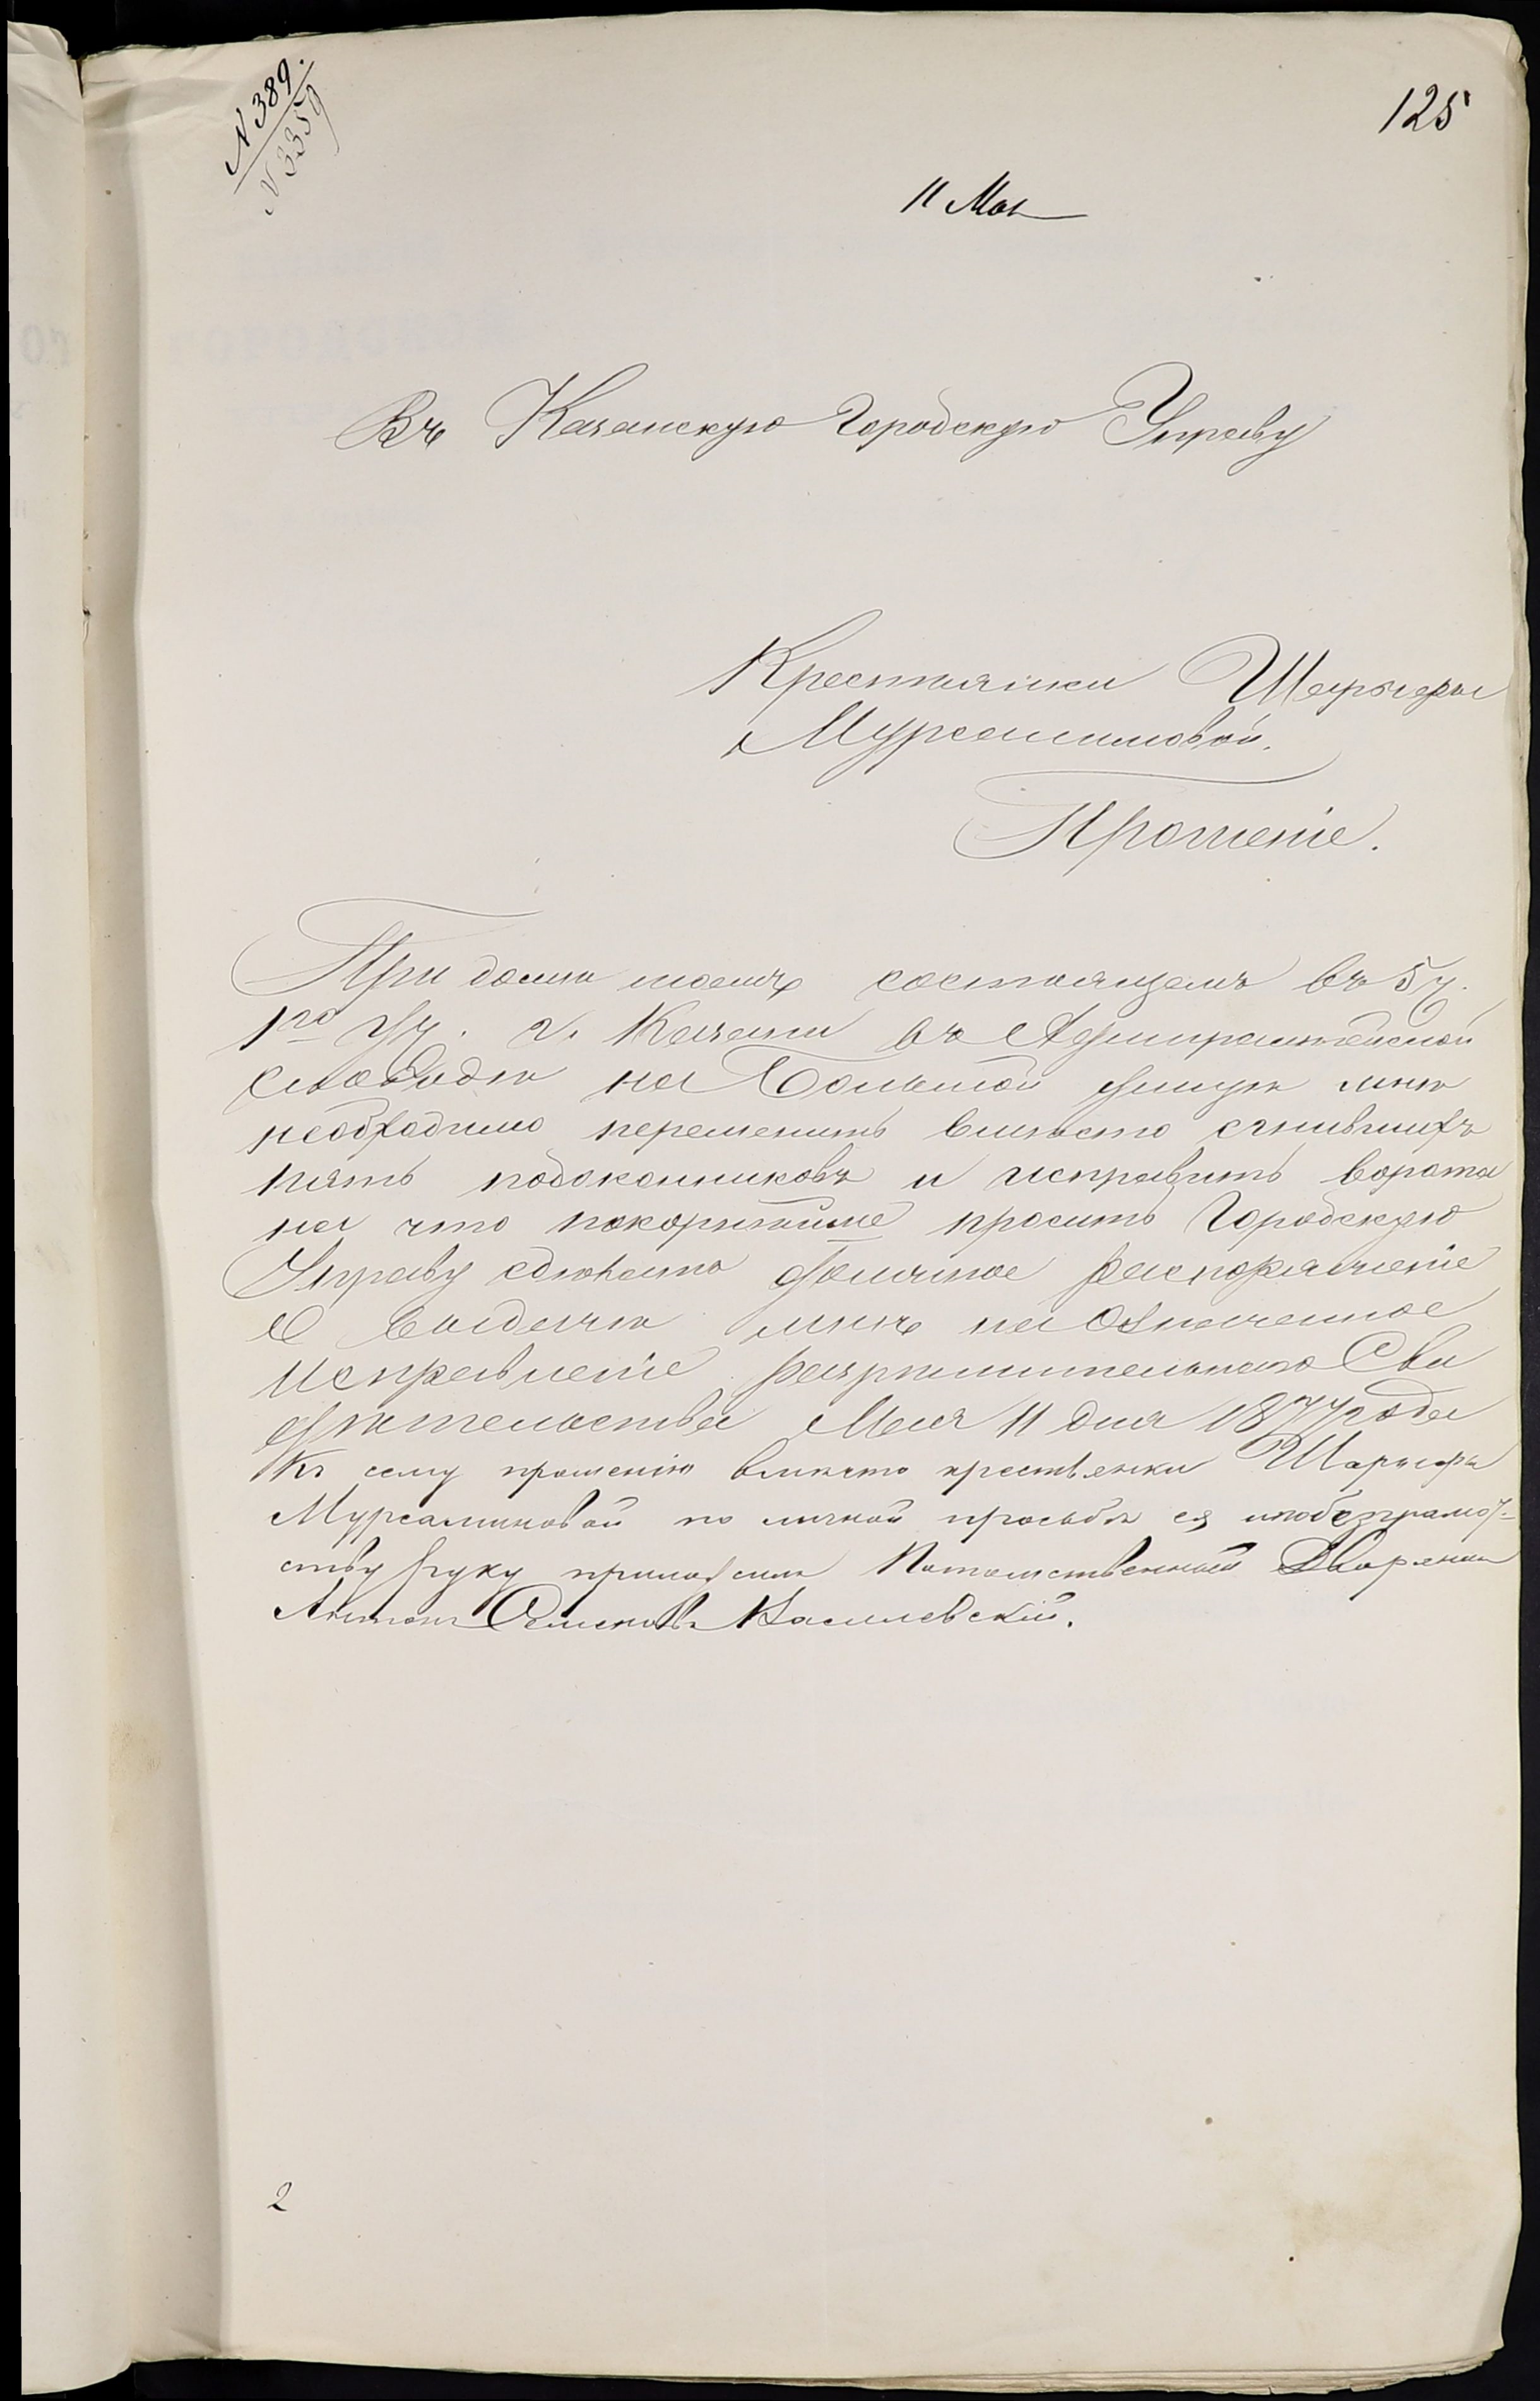 N 389.
N 3359
125
11 Мая
Въ Казанскую Городскую Управу
Крестьянки Шарифы
Мурсалимовой.
Прошеніе.
При домѣ моемъ состоящемъ въ 5 ч.
1го уч. г. Казани въ Адмиралтейской
слободѣ на Большой улицѣ мнѣ
необходимо переменить вместо сгнившихъ
пять подоконниковъ и исправить ворота
на что покорнѣйше просить Городскую
Управу сдѣлать должное распоряженіе
О выдачѣ мнѣ на означенное
исправленіе разрѣшительнаго Сви
дѣтельства Мая 11 дня 1877 года
Къ сему прошенію вмѣсто крестьянки Шарифы
Мурсалимовой по личной просьбѣ ея и по безграмот-
ству руку приложилъ Потомственный Дворянин
Антонъ Семеновъ Василевскій.
2